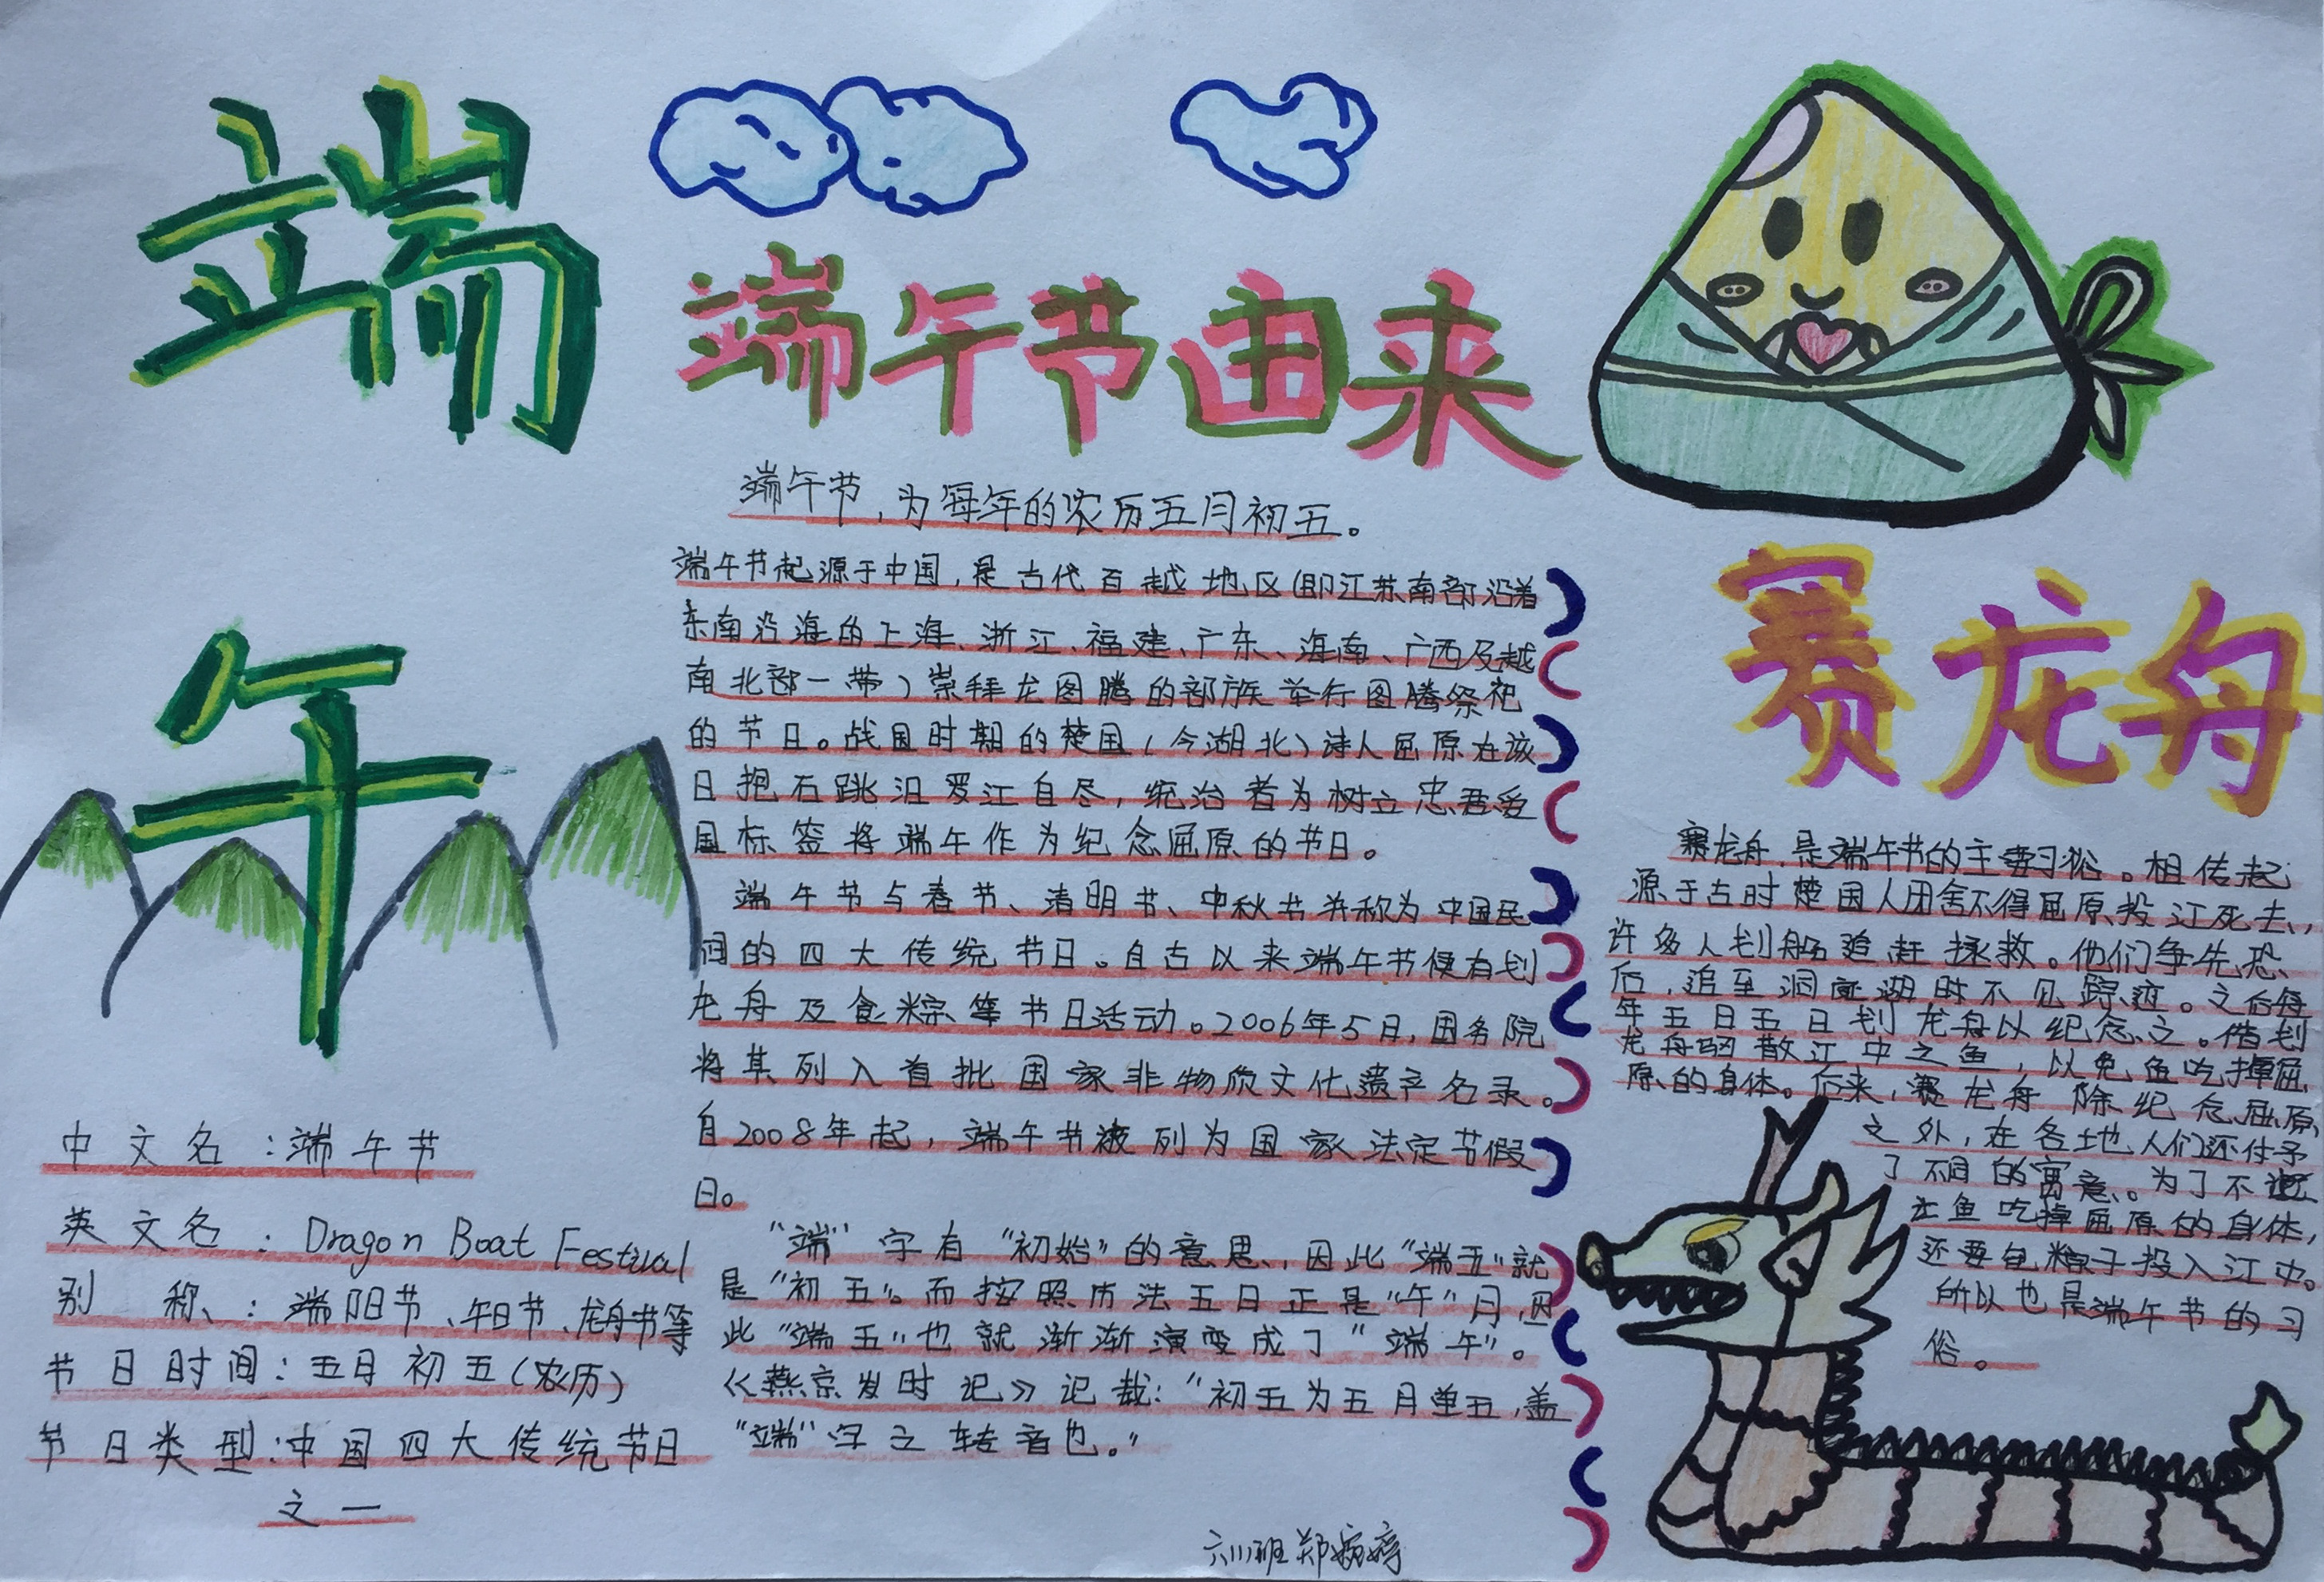 端
午
中文名：端午节
英文名：Dragon Boat Festival
别 称：端阳节、午日节、龙舟节等
节日时间：五月初五（农历）
节日类型：中国四大传统节日
之一
端午节由来
端午节，为每年的农历五月初五。
端午节起源于中国，是古代百越地区（即江苏南部沿着
东南沿海的上海、浙江、福建、广东、海南、广西及越
南北部一带）崇拜龙图腾的部族举行图腾祭祀
的节日。战国时期的楚国（今湖北）诗人屈原在该
日抱石跳汨罗江自尽，统治者为树立忠君爱
国标签将端午作为纪念屈原的节日。
端午节与春节、清明节、中秋节并称为中国民
间的四大传统节日。自古以来端午节便有划
龙舟及食粽等节日活动。2006年5日，国务院
将其列入首批国家非物质文化遗产名录。
自2008年起，端午节被列为国家法定节假
日。
“端”字有“初始”的意思，因此“端五”就
是“初五”。而按照历法五日正是“午”月，因
此“端五”也就渐渐演变成了“端午”。
《燕京岁时记》记载：“初五为五月单五，盖
“端”字之转音也。”
六(1)班 郑婉婷
赛龙舟
赛龙舟，是端午节的主要习俗。相传起
源于古时楚国人因舍不得屈原投江死去，
许多人划船追赶拯救。他们争先恐
后，追至洞庭湖时不见踪迹。之后每
年五日五日划龙舟以纪念之。借划
龙舟驱散江中之鱼，以免鱼吃掉屈
原的身体。后来，赛龙舟除纪念屈原
之外，在各地人们还付予
了不同的寓意。为了不让
江鱼吃掉屈原的身体，
还要包粽子投入江中。
所以也是端午节的习
俗。